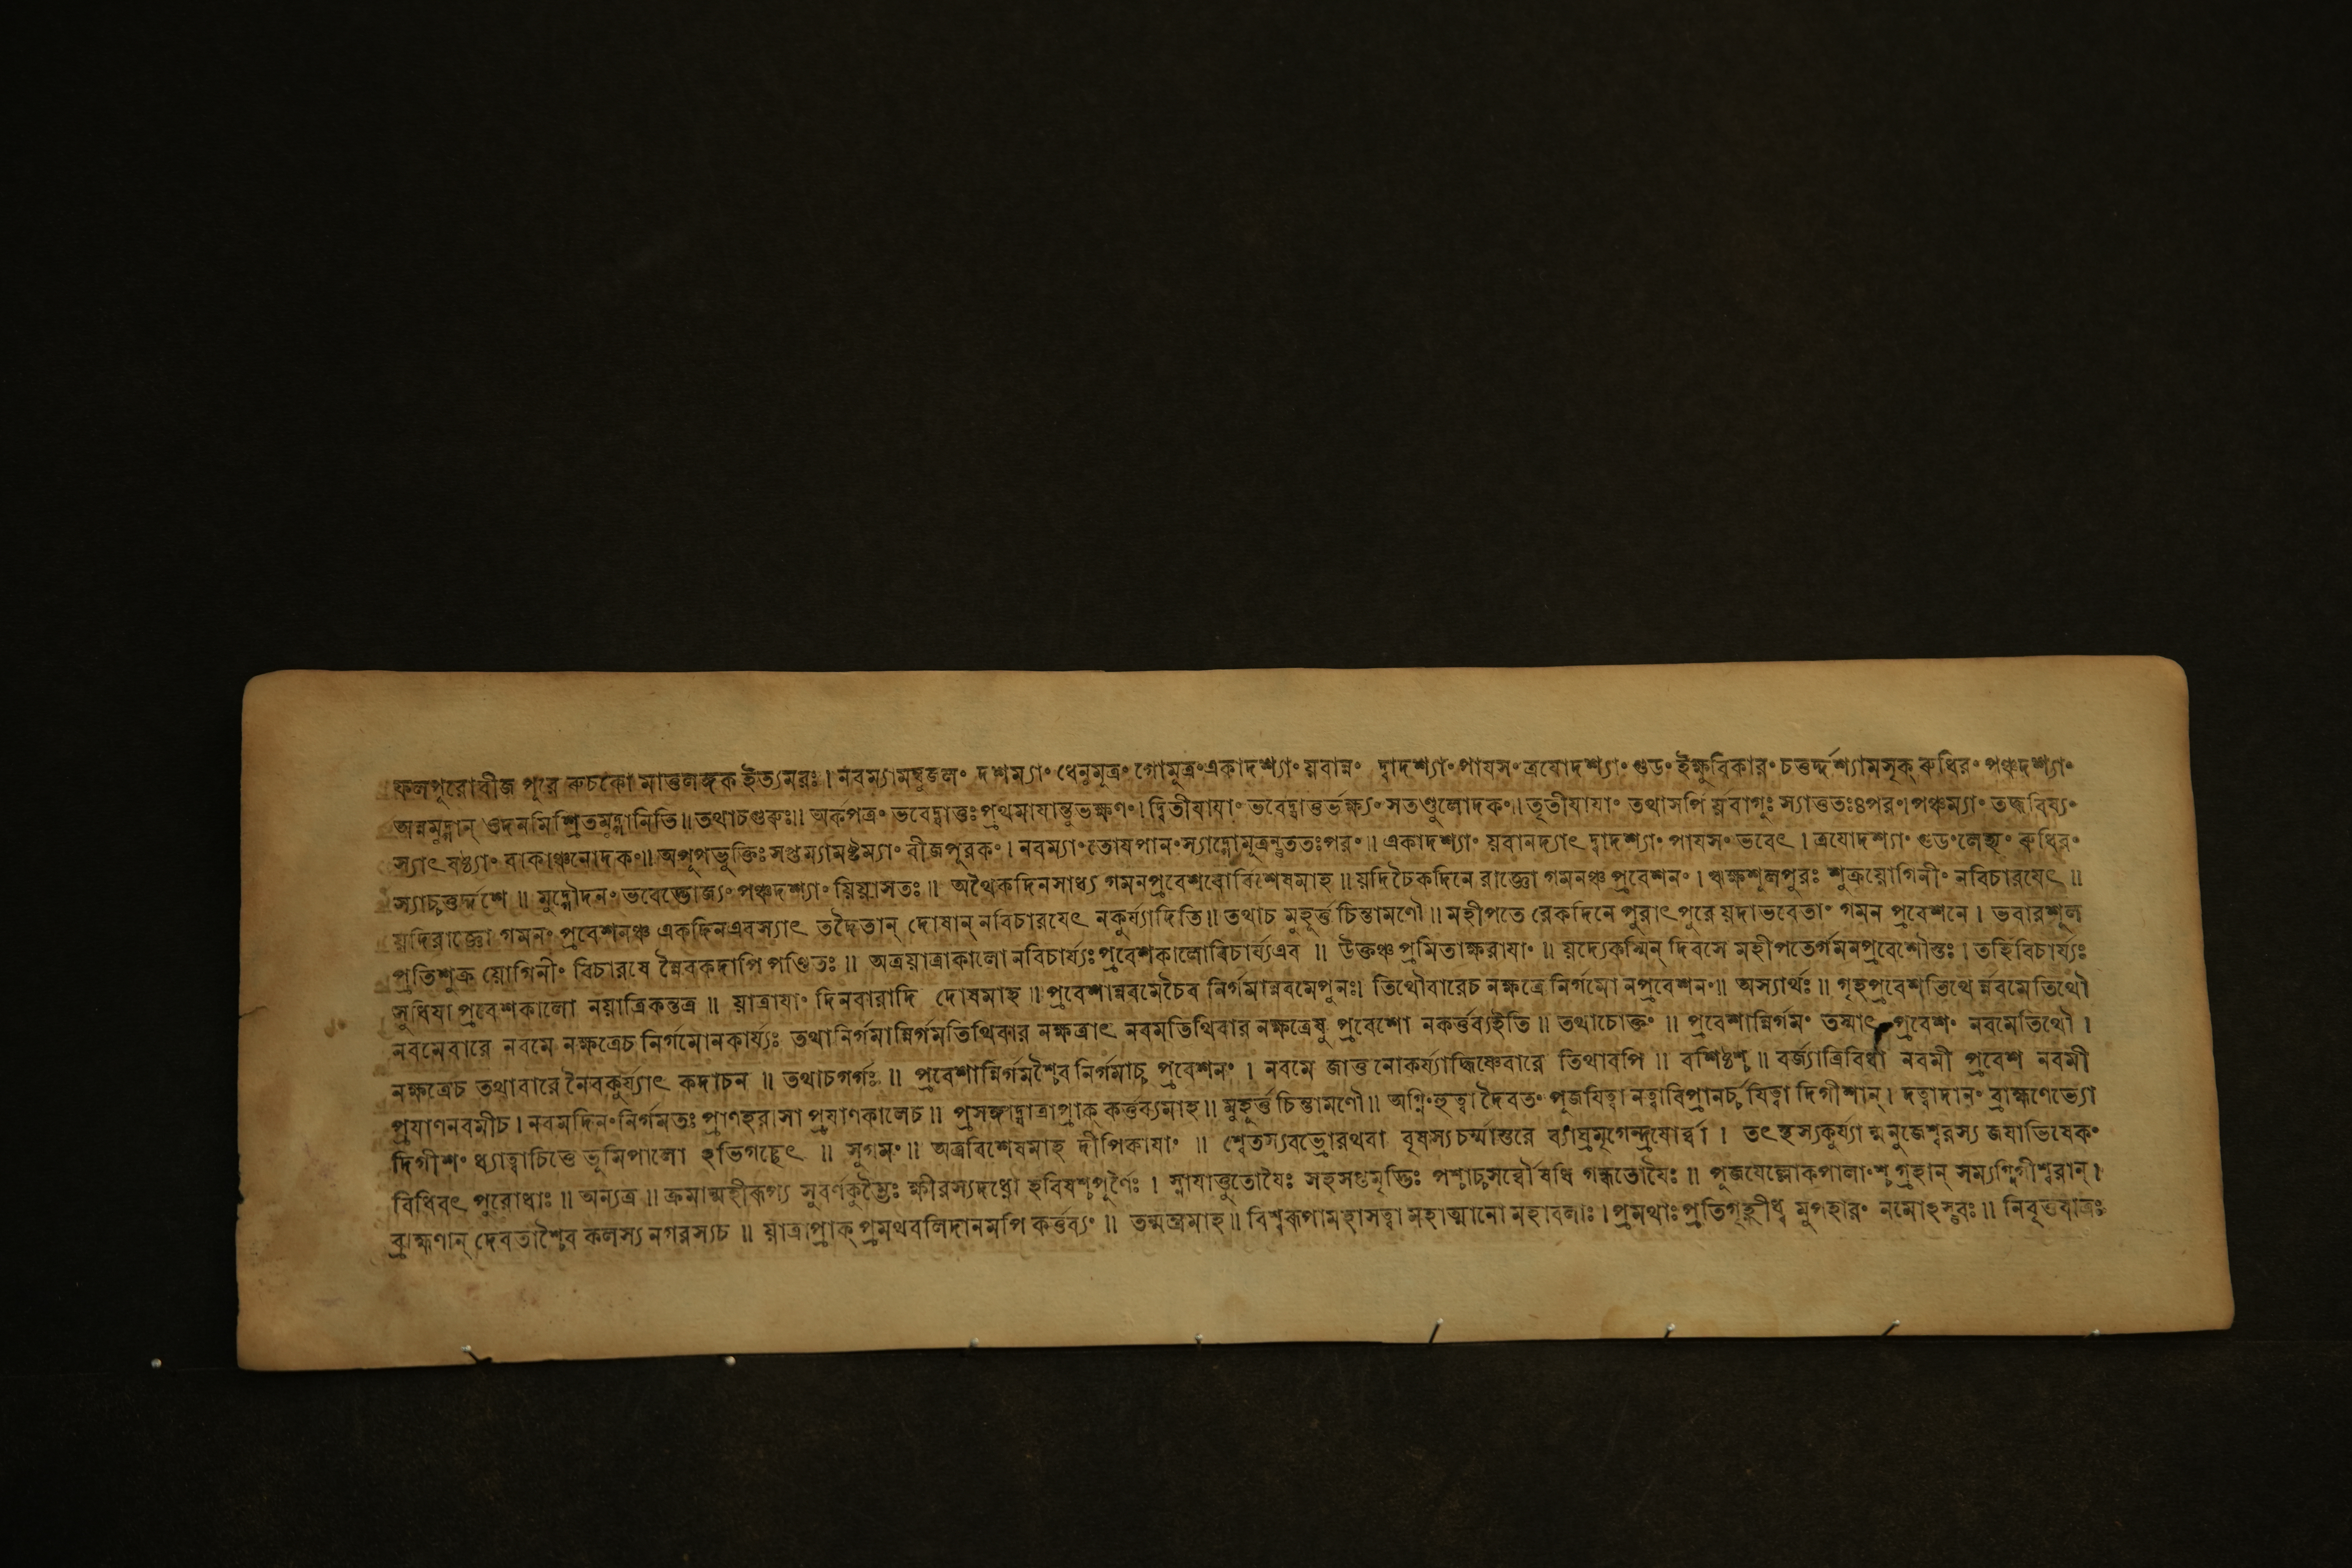 ফলপুরোবীজ পুরে রুচকো মাতুলঙ্গক ইত্যমরঃ। নবম্যামম্বুজলং দশম্যাং ধেনুমূত্রং গোমূত্রং একাদশ্যাং য়বান্নং দ্বাদশ্যাং পাযসং ত্রযোদশ্যাং গুডং ইক্ষুবিকারং চতুর্দ্দশ্যামসৃক্ রুধিরং পঞ্চদশ্যাং
অন্নমুদ্গান্ ওদনমিশ্রিতমুদ্গানিতি॥ তথাচগুরুঃ॥ অর্কপত্রং ভবেদ্বাত্তঃ প্রথমাযান্তুভক্ষণং। দ্বিতীযাযাং ভবেদ্বাত্তুর্ভক্ষ্যং সতণ্ডুলোদকং॥ তৃতীযাযাং তথাসর্পি র্য়বাগুঃ স্যাত্ততঃ৪পরং। পঞ্চম্যাং তদ্ধবিষ্যং
স্যাৎ ষষ্ঠ্যাং বাকাঞ্চনোদকং॥ অপূপভুক্তিঃ সপ্তম্যামষ্টম্যাং বীজপুরকং। নবম্যাং তোযপানং স্যাদ্গোমূত্রন্তুততঃপরং॥ একাদশ্যাং য়বানদ্যাৎ দ্বাদশ্যাং পাযসং ভবেৎ। ত্রযোদশ্যাং গুডং লেহ্যং রুধিরং
স্যাচ্চতুর্দ্দশে॥ মুদ্গৌদনং ভবেদ্ভোজ্যং পঞ্চদশ্যাং য়িয়াসতঃ॥ অথৈকদিনসাধ্য গমনপ্রবেশযোর্বিশেষমাহ॥ য়দিচৈকদিনে রাজ্ঞো গমনঞ্চ প্রবেশনং। ঋক্ষশূলপুরঃ শুক্রয়োগিনীং নবিচারযেৎ॥
য়দিরাজ্ঞো গমনং প্রবেশনঞ্চ একদিনএবস্যাৎ তদৈতান্ দোষান্ নবিচারযেৎ নকুর্য্যাদিতি॥ তথাচ মুহূর্ত্ত চিন্তামণৌ॥ মহীপতে রেকদিনে পুরাৎপুরে য়দাভবেতাং গমন প্রবেশনে। ভবারশূল
প্রতিশুক্র য়োগিনীং বিচারযে ন্নৈবকদাপি পণ্ডিতঃ॥ অত্রয়াত্রাকালো নবিচার্য্যঃ প্রবেশকালোবিচার্য্যএব॥ উক্তঞ্চ প্রমিতাক্ষরাযাং॥ য়দ্যেকস্মিন্ দিবসে মহীপতের্গমনপ্রবেশৌস্তঃ। তর্হিবিচার্য্যঃ
সুধিযা প্রবেশকালো নয়াত্রিকস্তত্র॥ য়াত্রাযাং দিনবারাদি দোষমাহ॥ প্রবেশান্নবমেচৈব নির্গমান্নবমেপুনঃ। তিথৌবারেচ নক্ষত্রে নির্গমো নপ্রবেশনং॥ অস্যার্থঃ॥ গৃহপ্রবেশতিথে র্নবমেতিথৌ
নবমেবারে নবমে নক্ষত্রেচ নির্গমোনকার্য্যঃ তথানির্গমান্নির্গমতিথিবার নক্ষত্রাৎ নবমতিথিবার নক্ষত্রেষু প্রবেশো নকর্ত্তব্যইতি॥ তথাচোক্তং॥ প্রবেশান্নির্গমং তস্মাৎ প্রবেশং নবমেতিথৌ।
নক্ষত্রেচ তথাবারে নৈবকুর্য্যাৎ কদাচন॥ তথাচগর্গঃ॥ প্রবেশান্নির্গমশ্চৈব নির্গমাচ্চ প্রবেশনং। নবমে জাতু নোকর্য্যাদ্ধিষ্ণেবারে তিথাবপি॥ বশিষ্ঠশ্চ॥ বর্জ্যাত্রিবিধা নবমী প্রবেশ নবমী
প্রযাণনবমীচ। নবমদিনং নির্গমতঃ প্রাণহরাসা প্রযাণকালেচ॥ প্রসঙ্গাদ্যাত্রাপ্রাক্ কর্ত্তব্যমাহ॥ মুহূর্ত্ত চিন্তামণৌ॥ অগ্নিং হুত্বা দৈবতং পূজযিত্বা নত্বাবিপ্রানর্চ্চযিত্বা দিগীশান্। দত্বাদানং ব্রাহ্মণেভ্যো
দিগীশং ধ্যাত্বাচিত্তে ভূমিপালো ঽভিগচ্ছেৎ॥ সুগমং॥ অত্রবিশেষমাহ দীপিকাযাং॥ শ্বেতস্যবভ্রোরথবা বৃষস্যচর্ম্মান্তরে ব্যাঘ্রমৃগেন্দ্রযোর্ব্বা। তৎস্থস্যকুর্য্যা ন্মনুজেশ্বরস্য জযাভিষেকং
বিধিবৎ পুরোধাঃ॥ অন্যত্র॥ ক্রমান্মহীরূপ্য সুবর্ণকুম্ভৈঃ ক্ষীরস্যদধ্নো হবিষশ্চপুর্ণৈঃ। স্নাযাত্তুতোযৈঃ সহসপ্তমৃদ্ভিঃ পশ্চাচ্চসর্ব্বৌষধি গন্ধতোযৈঃ॥ পূজযেল্লোকপালাংশ্চ গ্রহান্ সম্যগ্দিগীশ্বরান্।
ব্রাহ্মণান্ দেবতাশ্চৈব কলস্য নগরস্যচ॥ য়াত্রাপ্রাক্ প্রমথবলিদানমপি কর্ত্তব্যং॥ তন্মন্ত্রমাহ॥ বিশ্বরূপামহাসত্বা মহাত্মানো মহাবলাঃ। প্রমথাঃ প্রতিগৃহ্ণীধ্ব মুপহারং নমোঽস্তুবঃ॥ নিবৃত্তযাত্রঃ